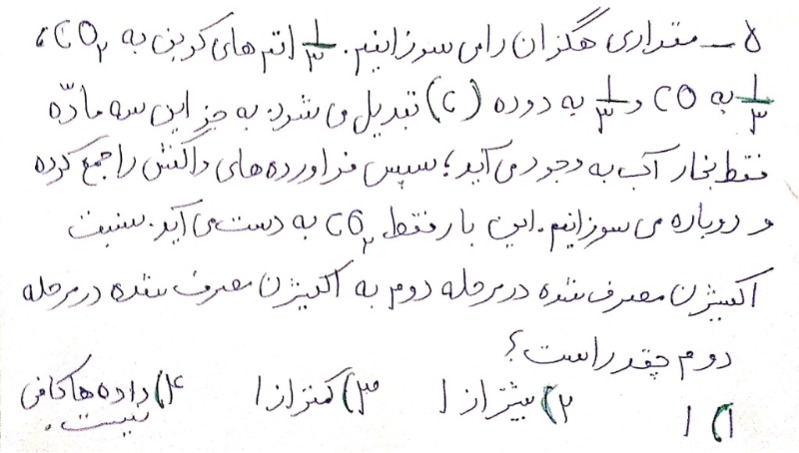 ۵ـ مقداری هگزان را می سوزانیم. ۱/۳ اتم های کربن به CO₂،
۱/۳ به CO و ۱/۳ به دوده (C) تبدیل می شود. به جز این سه مادّه
فقط بخار آب به وجود می آید؛ سپس فراورده های واکنش را جمع کرده
و دوباره می سوزانیم. این بار فقط CO₂ به دست می آید. نسبت
اکسیژن مصرف شده در مرحله دوم به اکسیژن مصرف شده در مرحله
دوم چقدر است؟
۱) ۱ ۲) بیشتر از ۱ ۳) کمتر از ۱ ۴) داده ها کافی
نیست.